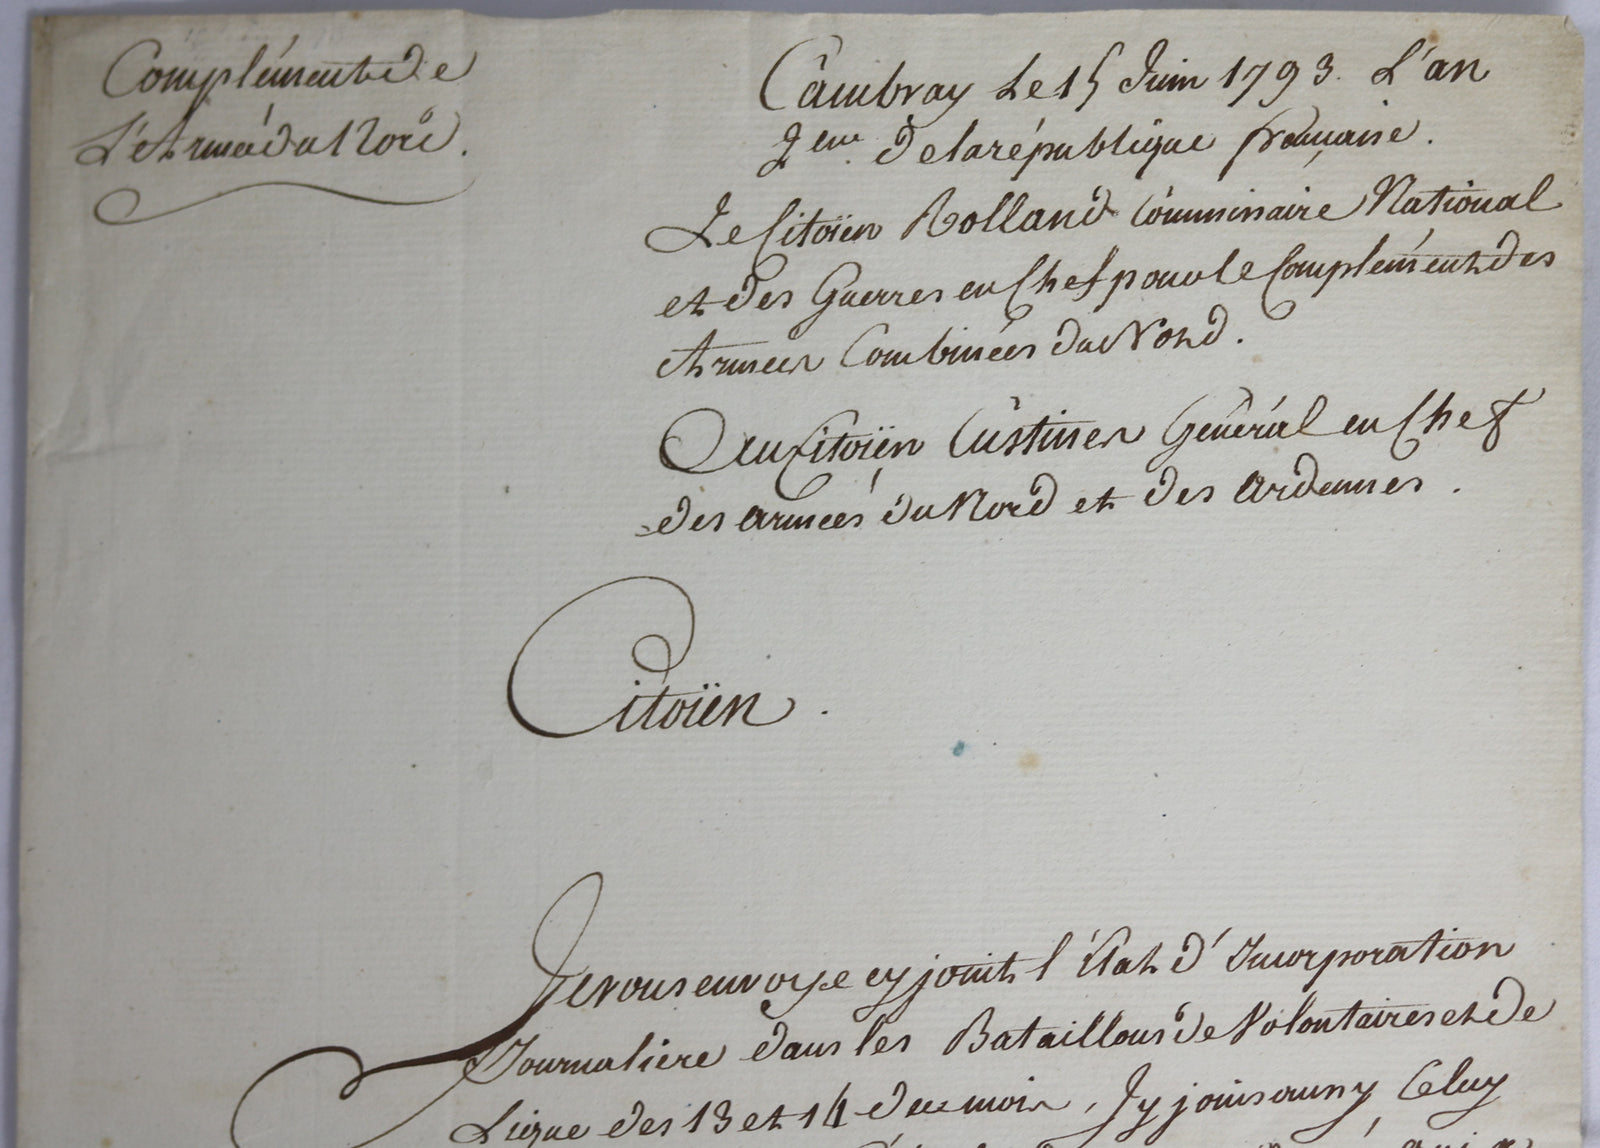 Complément de
L'Armée du Nord.
Cambray Le 15 Juin 1793. L'an
2eme. de la république française.
Le Citoïen Rolland Commissaire National
et des Guerres en Chef pour le Complément des
Armées Combinées du Nord.
Au Citoïen Custines Général en Chef
des armées du Nord et des ardennes.
Citoïen.
Je vous envoye cy joint l'État d'Incorporation
Journaliere dans les Bataillons de Volontaires et de
Ligne des 13 et 14 de ce mois, J'y joins aussy Celuy